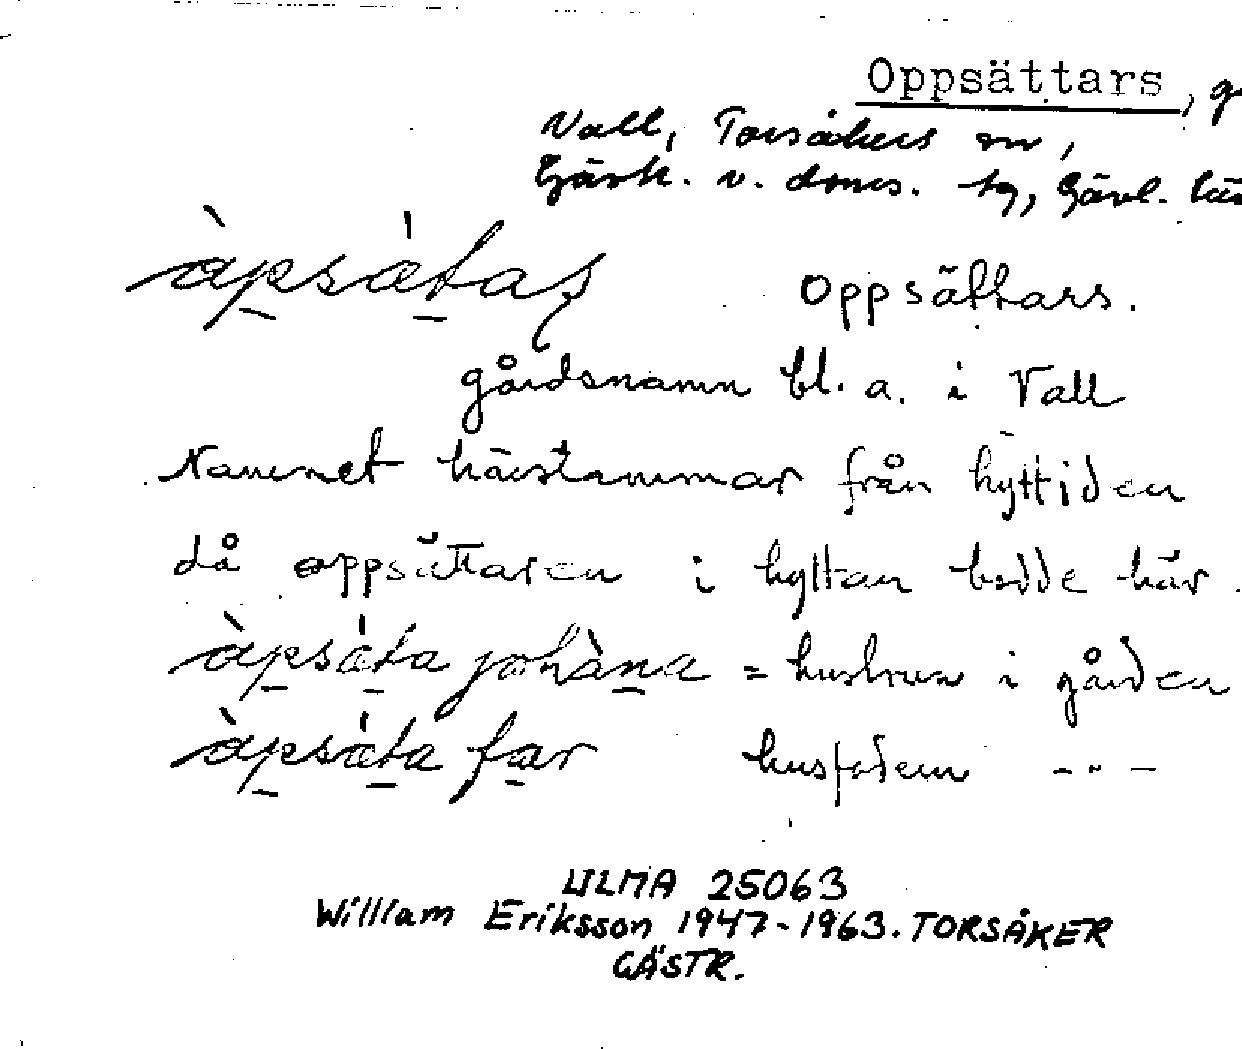 Oppsättars, g
Vall, Torsåkers sn,
Gästr. v. doms. tg, Gävl. län
àpsǽtaṣ Oppsättars.
gårdsnamn bl. a. i Vall
Namnet härstammar från hyttiden
då oppsättaren i hyttan bodde här.
àpsǽta johàna = hustrun i gården
àpsǽta far husfadern - " -
ULMA 25063
William Eriksson 1947-1963. TORSÅKER
GÄSTR.